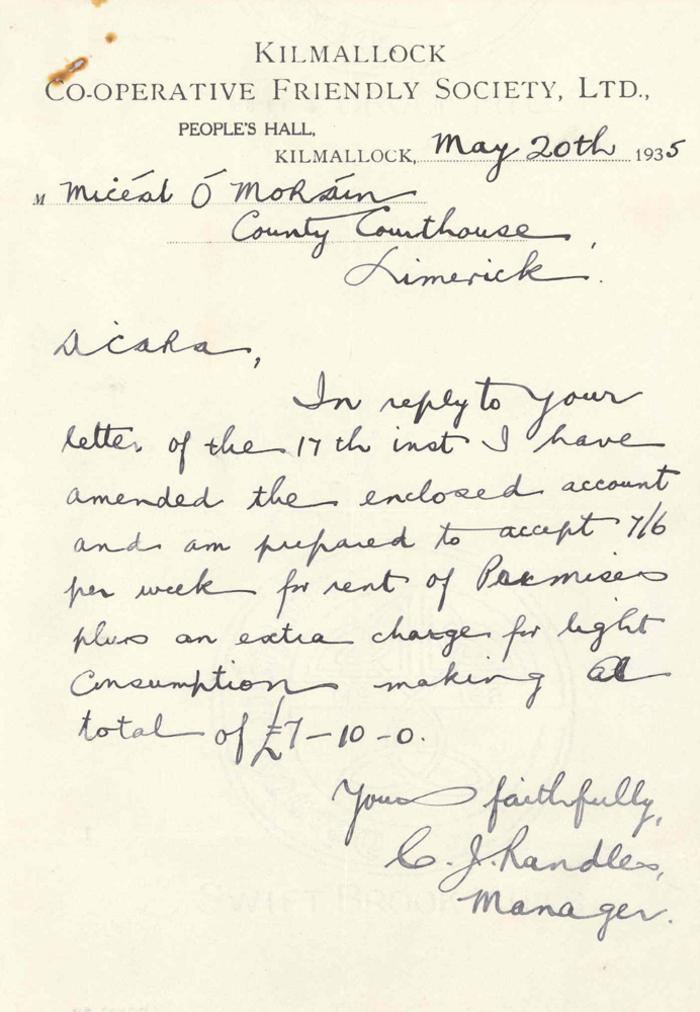 KILMALLOCK
CO-OPERATIVE FRIENDLY SOCIETY, LTD.,
PEOPLE'S HALL,
KILMALLOCK, May 20th 1935
M Micéal Ó Moráin
County Courthouse,
Limerick.
A cara,
In reply to your
letter of the 17th inst I have
amended the enclosed account
and am prepared to accept 7/6
per week for rent of Premises
plus an extra charge for light
Consumption making a
total of £7-10-0.
Yours faithfully,
C. J. Handles,
Manager.
SWIFT BROOK